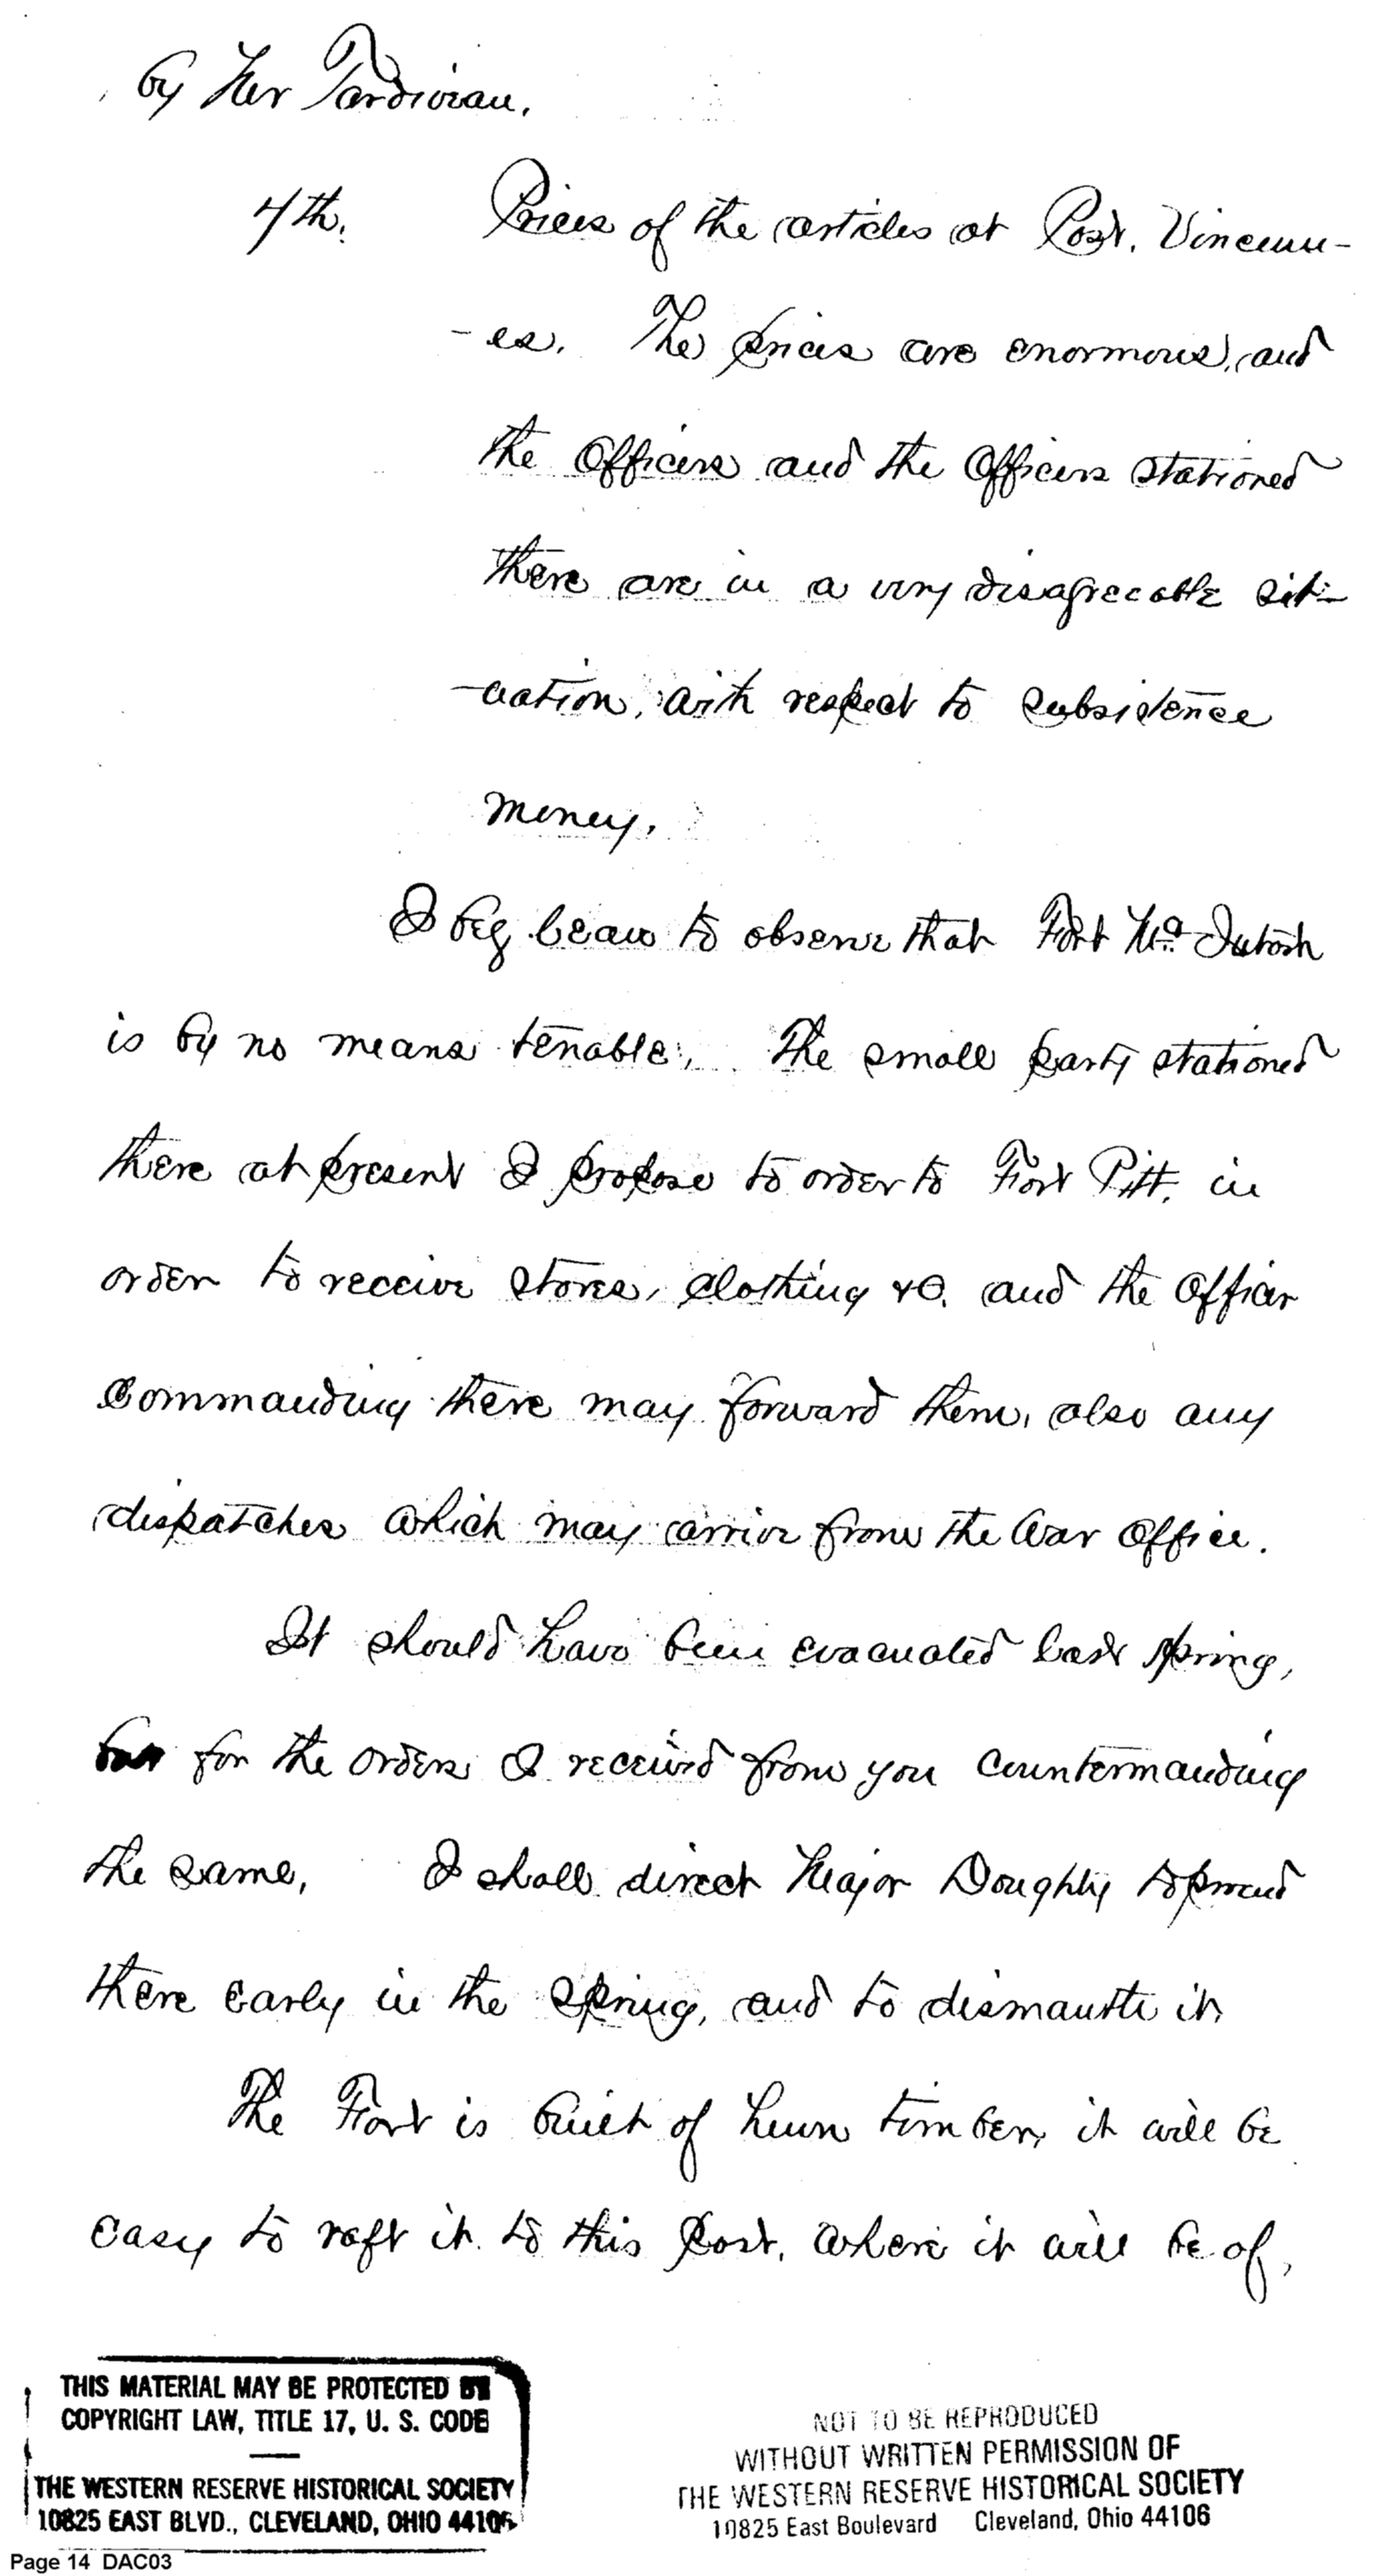 by Mr Tardiveau.
4th. Prices of the articles at Post. Vincenn-
-es. The prices are enormous, and
the Officers and the Officers stationed
there are in a very disagreeable sit-
-uation, with respect to subsistence
money.
I beg leave to observe that Fort Mc. Intosh
is by no means tenable. The small party stationed
there at present I propose to order to Fort Pitt, in
order to receive stores, clothing &C. and the Officer
Commanding there may forward them, also any
dispatches which may arrive from the War Office.
It should have been evacuated last spring,
but for the orders I received from you countermanding
the same. I shall direct Major Doughty to proceed
there early in the spring, and to dismantle it.
The Fort is built of hewn timber, it will be
easy to raft it to this post, where it will be of,
THIS MATERIAL MAY BE PROTECTED BY
COPYRIGHT LAW, TITLE 17, U. S. CODE
THE WESTERN RESERVE HISTORICAL SOCIETY
10825 EAST BLVD., CLEVELAND, OHIO 44106
NOT TO BE REPRODUCED
WITHOUT WRITTEN PERMISSION OF
THE WESTERN RESERVE HISTORICAL SOCIETY
10825 East Boulevard Cleveland, Ohio 44106
Page 14 DAC03